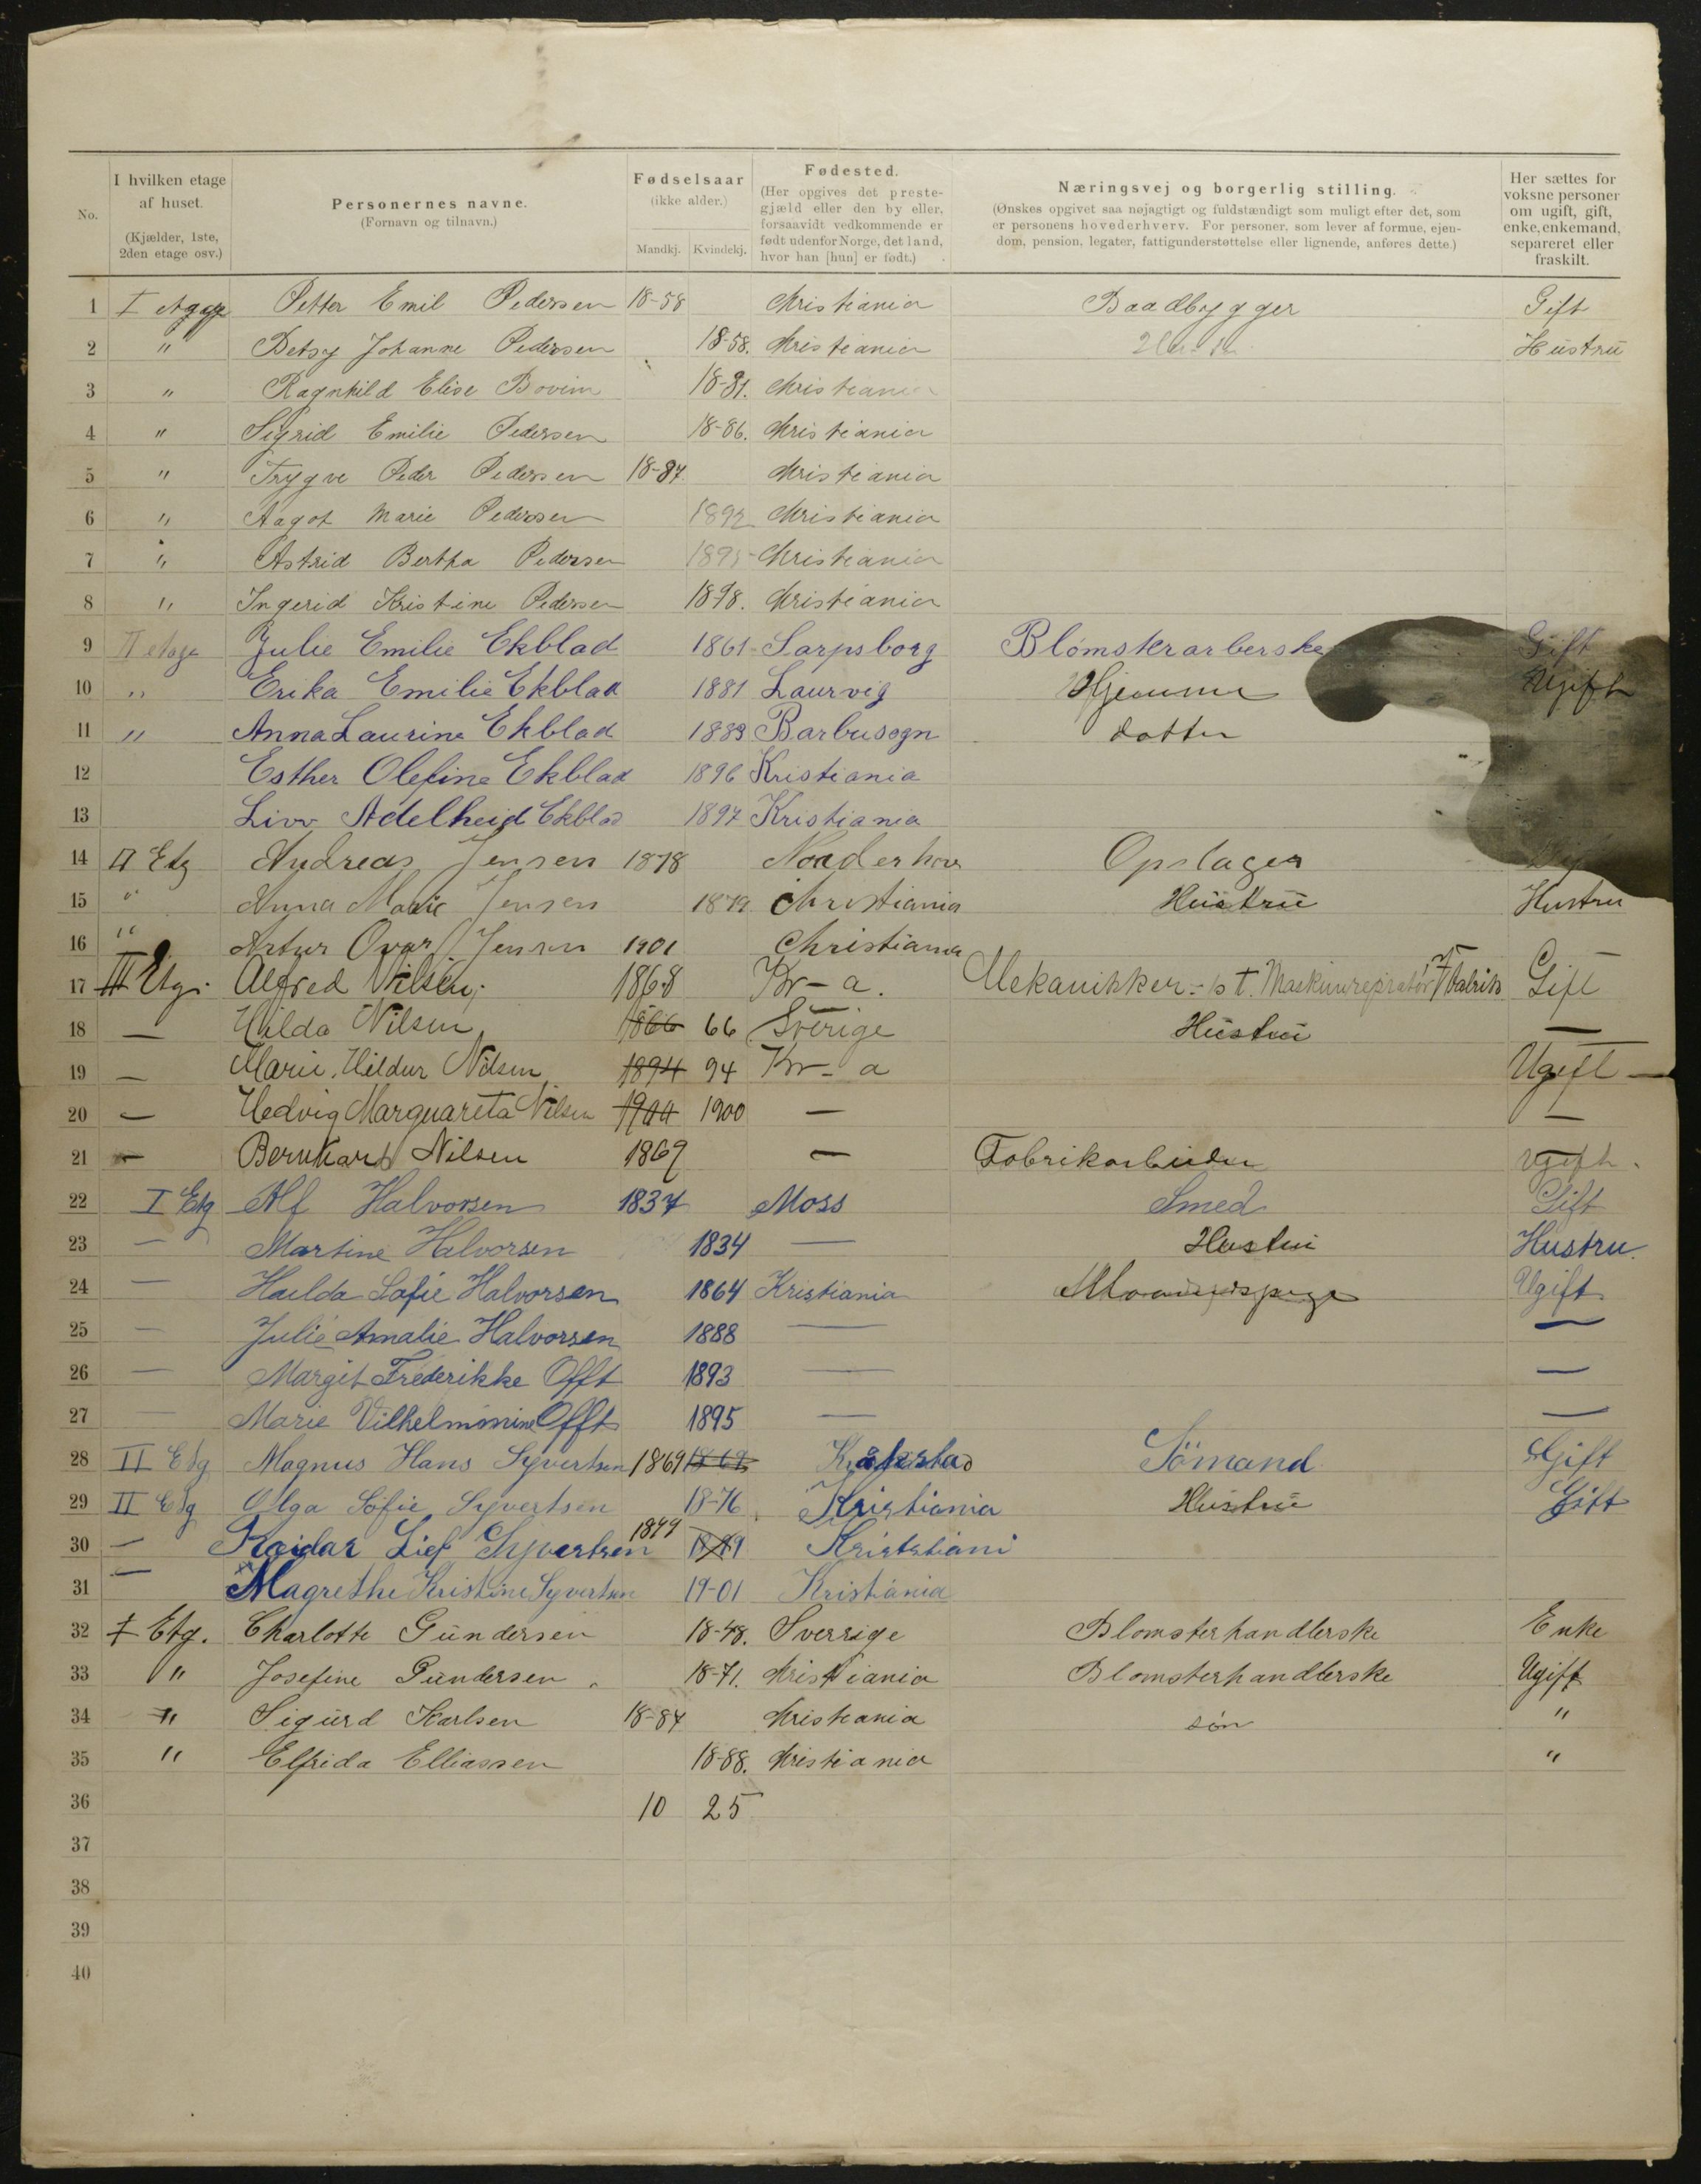 No.
I hvilken etage af huset. (Kjælder, 1ste, 2den etage osv.)
Personernes navne. (Fornavn og tilnavn.)
Fødselsaar (ikke alder.) Mandkj. Kvindekj.
Fødested. (Her opgives det prestegjæld eller den by eller, forsaavidt vedkommende er født udenfor Norge, det land, hvor han [hun] er født.)
Næringsvej og borgerlig stilling. (Ønskes opgivet saa nøjagtigt og fuldstændigt som muligt efter det, som er personens hovederhverv. For personer, som lever af formue, ejendom, pension, legater, fattigunderstøttelse eller lignende, anføres dette.)
Her sættes for voksne personer om ugift, gift, enke, enkemand, separeret eller fraskilt.
1 I Petter Emil Pedersen 18-58 Christiania Baadbygger Gift
2 " Betsy Johanne Pedersen 18-58. Christiania Hustru
3 " Ragnhild Elise Bovim 18-81. Christiania
4 " Sigrid Emilie Pedersen 18-86. Christiania
5 " Trygve Peder Pedersen 18-87. Christiania
6 " Aagot Marie Pedersen 1892 Christiania
7 " Astrid Bertha Pedersen 1895 Christiania
8 " Ingerid Kristine Pedersen 1898. Christiania
9 II etage Julie Emilie Ekblad 1861 Sarpsborg Blómskrarberske Gift
10 " Erika Emilie Ekblad 1881 Laurvig Hjemme Ugift
11 " Anna Laurine Ekblad 1889 Barbusogn datter
12 Esther Olefine Ekblad 1896 Kristiania
13 Livv Adelheid Ekblad 1897 Kristiania
14 II Etg Andreas Jensen 1878 Noaderhov Opslager
15 " Anna Marie Jensen 1879 Christiania Hustru Hustru
16 " Artur Ovar Jensen 1901 Christiania
17 III Etg. Alfred Nilsen. 1868 Kr-a. Mekanikker - p t. Maskinrepratör Fabrik Gift
18 — Hilda Nilsen 1866 66 Sverige Hustru —
19 — Marie Hildur Nilsen 1894 94 Kr-a Ugift —
20 — Hedvig Marguareta Nilsen 1900 1900 — —
21 — Bernhard Nilsen 1869 — Fabrikarbeider Ugift.
22 I Etg Alf Halvorsen 1837 Moss Smed Gift
23 — Martine Halvorsen 1834 — Hustru Hustru.
24 — Hulda Sofie Halvorsen 1864 Kristiania Ugift
25 — Julie Amalie Halvorsen 1888 — —
26 — Margit Frederikke Offt 1893 — —
27 — Marie Vilhelmmine Offt 1895 — —
28 II Etg Magnus Hans Syvertsen 1869 1869 Kraakstad Sömand Gift
29 II Etg Olga Sofie Syvertsen 18-76 Kristiania Hustru Gift
30 — Reidar Lief Syvertsen 1899 1899 Kriststiani
31 — Magrethe Kristine Syvertsen 19-01 Kristiania
32 I Etg. Charlotte Gundersen 18-48. Sverrige Blomsterhandlerske Enke
33 " Josefine Gundersen 18-71. Christiania Blomsterhandlerske Ugift
34 " Sigurd Karlsen 18-84 Christiania søn "
35 " Elfrida Elliassen 18-88. Christiania "
36 10 25
37
38
39
40